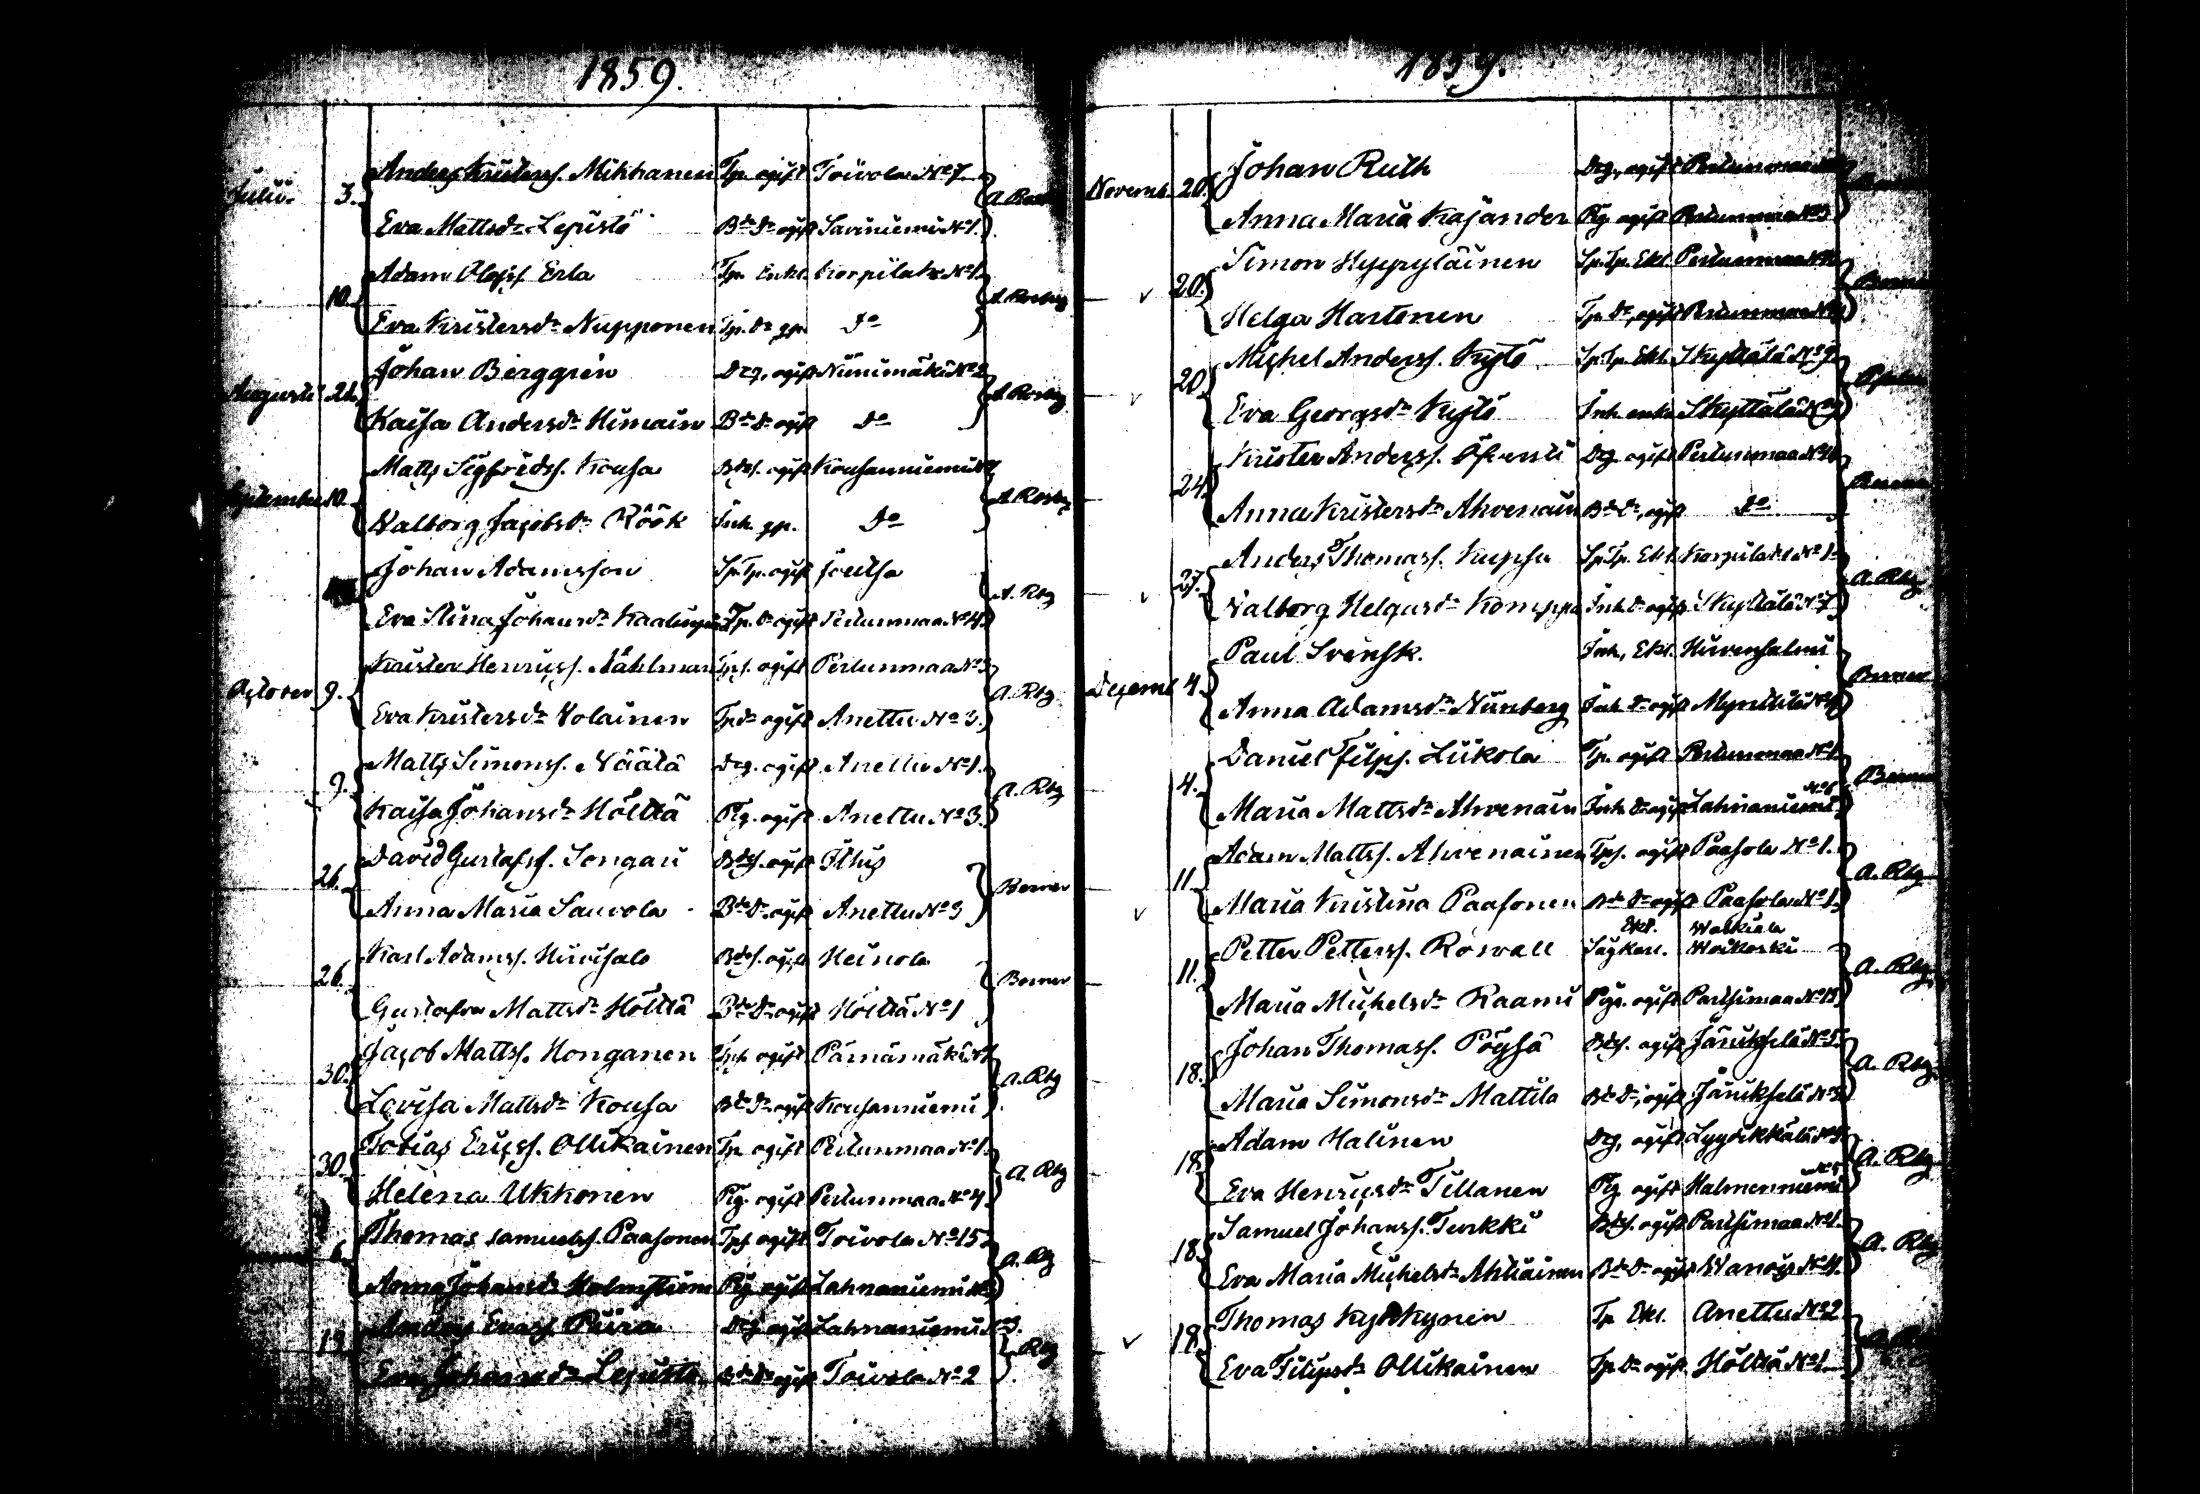 1859.
Julii 3. Anders Kristerss. Mikkanen Tp. ogift Toivola No 7 A. Rosbg
Eva Mattsdr Lepistö Bde Dr ogift Saviniemi No 1.
10. Adam Olofss. Erla Tp. Enkl. Korpilax No 1. A. Rosbrg
Eva Kristersdr Nupponen Tp. Dr gp. Do
Augusti 21. Johan Berggrén Drg. ogift Niinimäki No 2 A. Rosbrg
Kaisa Andersdr Himain Bde Dr ogift Do
September 10. Matts Sigfridss. Kousa Bdes. ogift Kousanniemi A. Rosbrg
Walborg Jacobsdr Röök Inh. gp. Do
Johan Adamsson Sp.Tp. ogift Joutsa A. Rbg
Eva Stina Johansdr Tp. Dr ogift Pertunmaa No 4.
October 9. Krister Henricss. Påhlman Tps. ogift Pertunmaa No 3 A. Rbg
Eva Kristersdr Wolainen Tp dr ogift Anettu No 3.
9. Matts Simonss. Näätä Drg. ogift Anettu No 1. A. Rbg
Kaisa Johansdr Hölttä Pig. ogift Anettu No 3.
26. David Gustafss. Bdes. ogift Ithis Berner
Anna Maria Sauvola Bde Dr ogift Anettu No 3
26. Karl Adamss. Hirvisalo Bdes. ogift Heinola Berner
Gustafva Mattsdr Hölttä Bde Dr ogift Hölttä No 1
30. Jacob Mattss. Honganen Inh. ogift Pärnämäki A. Rbg
Lovisa Mattsdr Kousa Bde Dr ogift Kousanniemi
30. Tobias Ericss. Ollikainen Tp. ogift Pertunmaa No 1. A. Rbg
Helena Ukkonen Pig. ogift Pertunmaa No 4.
6. Thomas Samuelss. Paasonen Tps. ogift Toivola No 15. A. Rbg
Anna Johansdr Holmström Pig. ogift Lahnaniemi
13. Anders Ericss. Piira Drg. ogift Lahnaniemi No 3. Rbg
Eva Johansdr Lepistö Bde Dr ogift Toivola No 2
1859.
Novemb. 20. Johan Ruth Drg. ogift Pertunmaa
Anna Maria Kajander Pig. ogift Pertunmaa No 3
20. Simon Hyyryläinen Sp.Tp. Ekl. Pertunmaa Berner
Helga Hartonen Tp. Dr, ogift Pertunmaa
20. Michel Anderss. Kytö Sp.Tp. Ekl. Skyttälä No 9
Eva Georgsdr Kytö Inh. enka Skyttälä No 9
24. Krister Anderss. Öfversti Drg. ogift Pertunmaa
Anna Kristersdr Ahvenain Bde Dr, ogift Do
27. Anders Thomass. Kupsa Sp.Tp. Ekl. Korpilax No 1. A. Rbg
Walborg Helgasdr Komppa Inh. Dr ogift Skyttälä No 7
Decemb 4. Paul Svensk. Inh. Ekl. Hirvensalmi Berner
Anna Adamsdr Nünberg Inh. Dr ogift Myntti
4. Daniel Filips. Liikola Tp. ogift Pertunmaa No 1 Berner
Maria Mattsdr Ahvenain Inh. Dr ogift Lahnaniemi No 6
11. Adam Mattss. Ahvenainen Tps. ogift Paasola No 1. A. Rbg
Maria Kristina Paasonen Bde Dr ogift Paasola No 1.
11. Petter Petterss. Rosvall Ekl. Sågkarl. Walkiala Woikoski A. Rbg
Maria Michelsdr Raami Pigs. ogift Partsimaa No 13
18. Johan Thomass. Pöysä Bdes. ogift Jänikselä No 5. A. Rbg
Maria Simonsdr Mattila Bde Dr, ogift Jänikselä No 3.
18. Adam Halinen Drg, ogift Lyydikkälä No 5. A. Rbg
Eva Henricsdr Tillanen Pig. ogift Halmenniemi No 5
18. Samuel Johanss. Turkki Bdes. ogift Partsimaa No 1. A. Rbg
Eva Maria Michelsdr Ahtiainen Bde Dr ogift Wanois No 4.
18. Thomas Kykkynen Tp Ekl. Anettu No 2
Eva Filipsdr Ollikainen Tp. Dr ogift Hölttä No 1